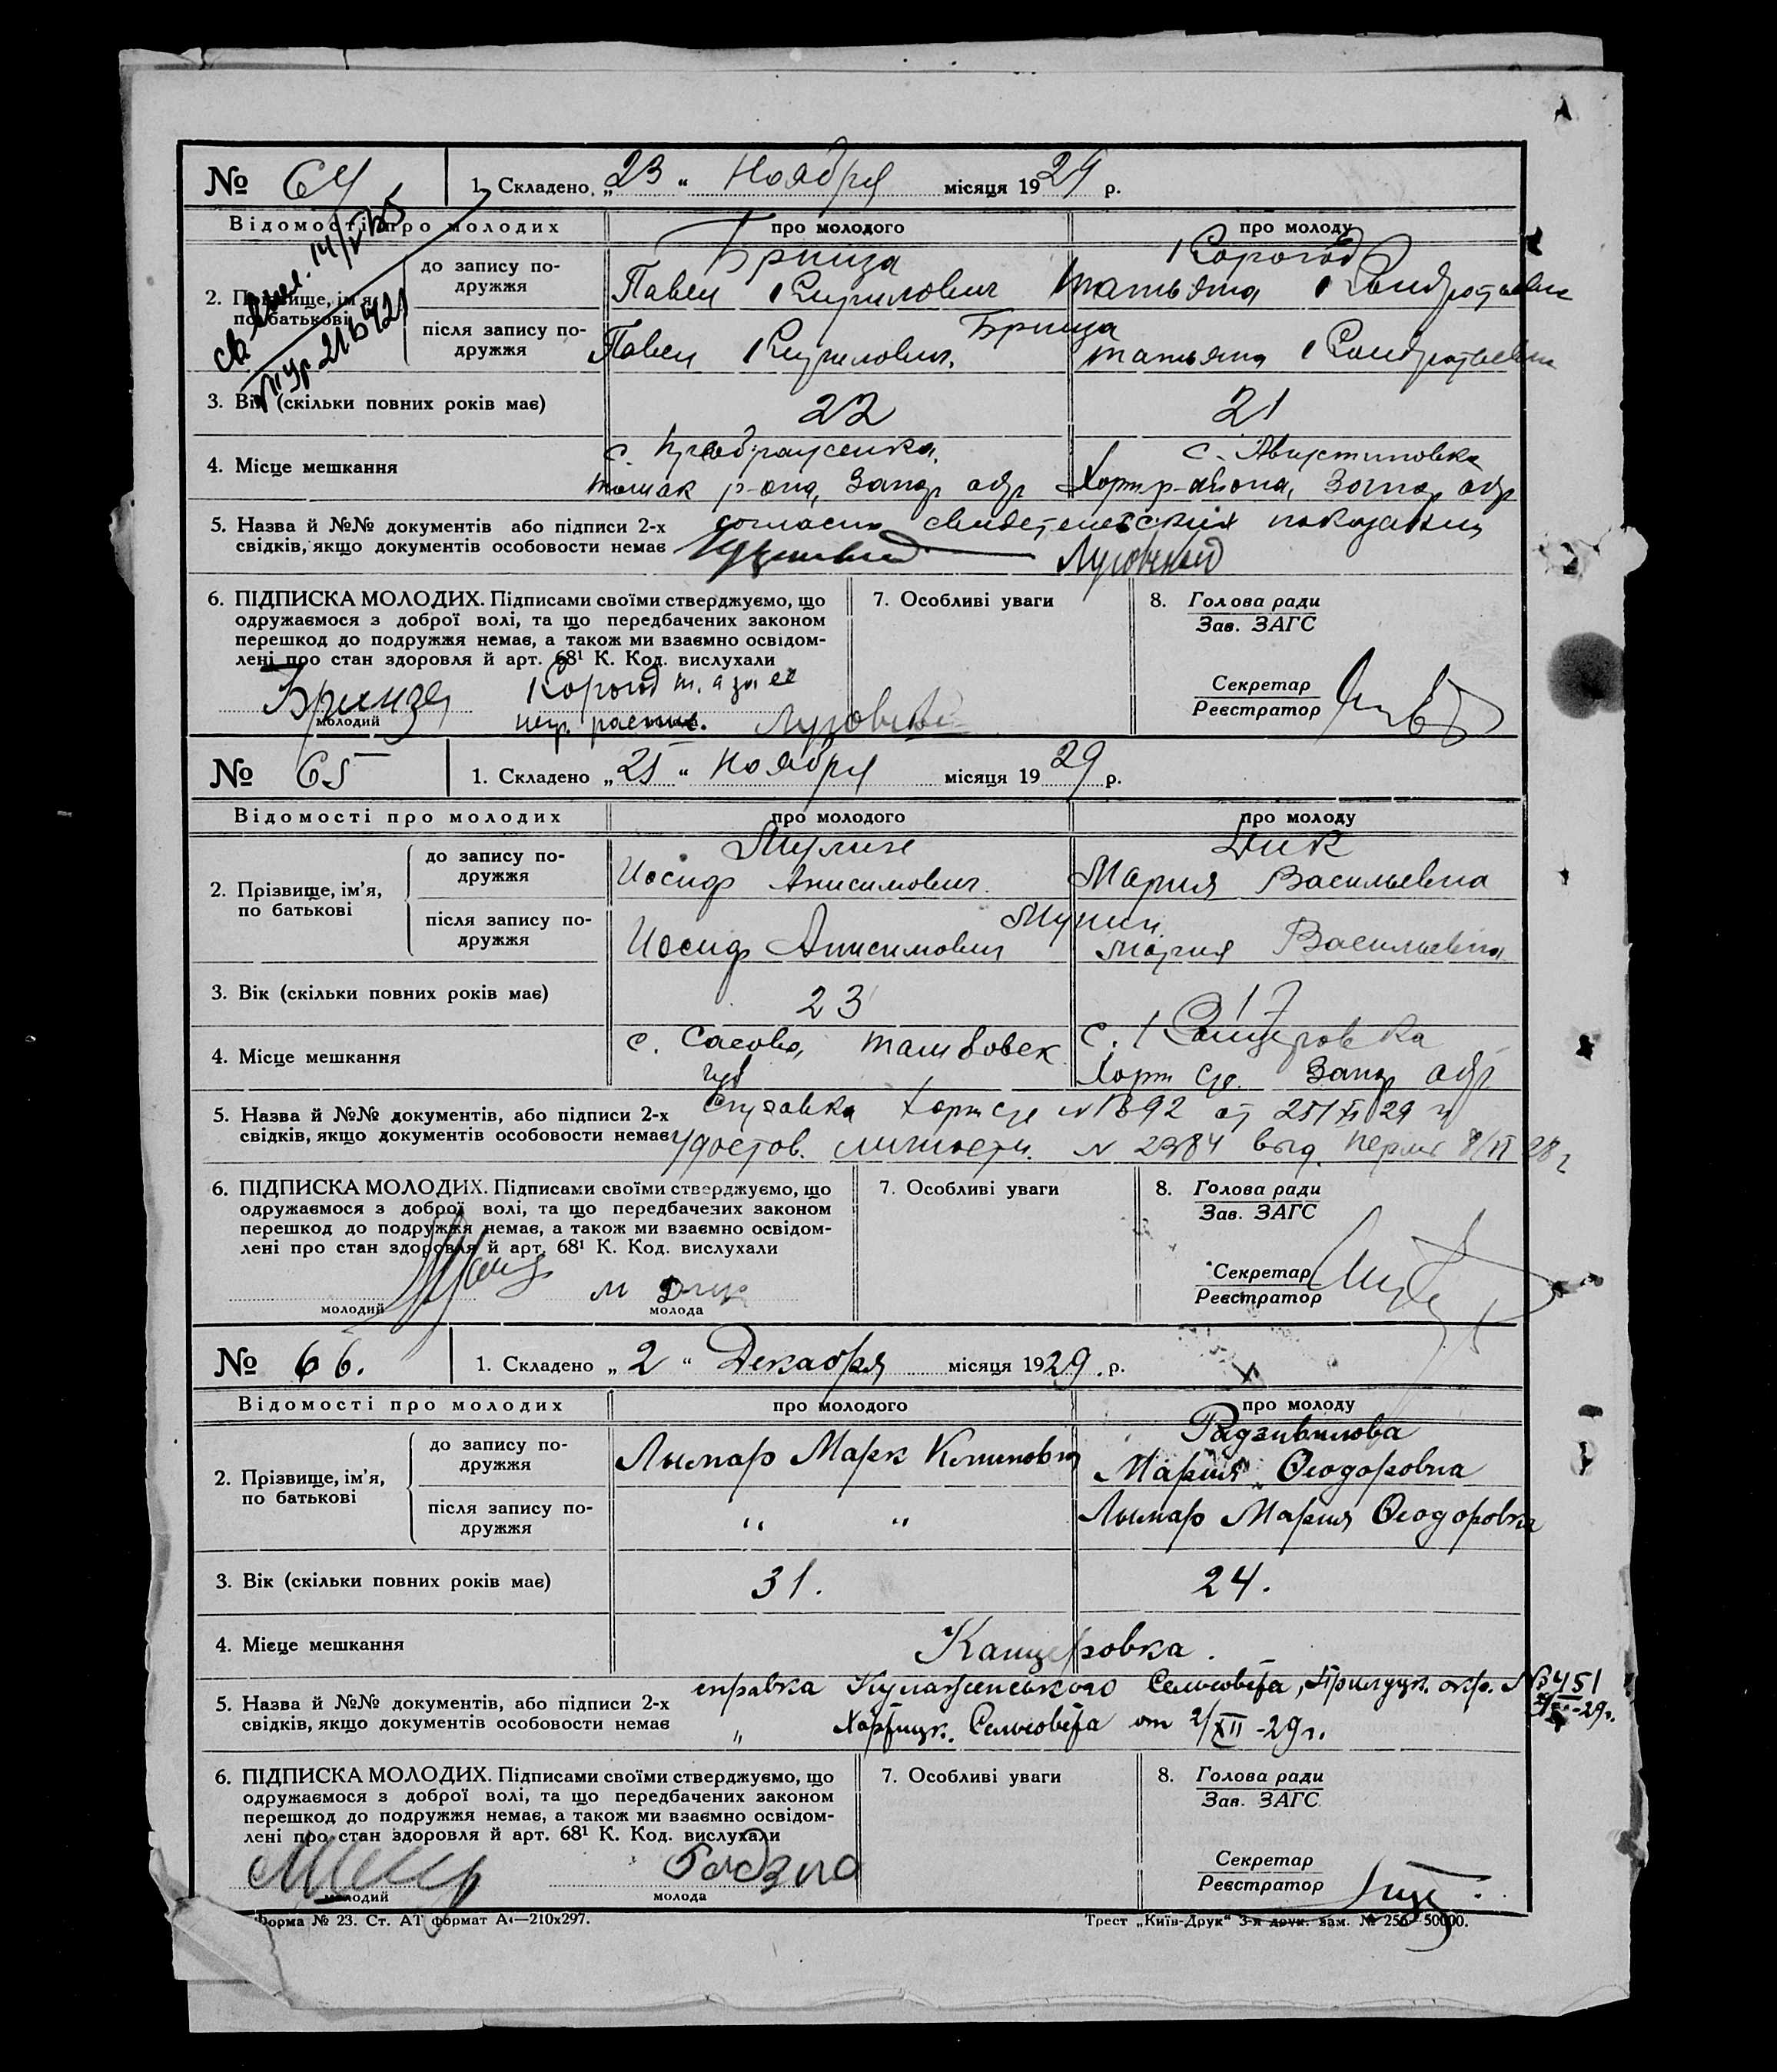 № 64 1. Складено „23“ Ноября місяця 1929 р.
Відомості про молодих про молодого про молоду
Корогод
до запису по-
дружжя Павел Кирилович Татьяна Кондратьевна
2. Прізвище, ім'я,
по батькові
після запису по-
дружжя Павел Кирилович Татьяна Кондратьевна
3. Вік (скільки повних років має) 22 21
с. с. Августиновка
4. Місце мешкання
р-она, Запор окр Хорт р-айона, Запор окр
5. Назва й №№ документів або підписи 2-х согласно свидетельских показаний
свідків, якщо документів особовости немає Луговской
6. ПІДПИСКА МОЛОДИХ. Підписами своїми стверджуємо, що 7. Особливі уваги 8. Голова ради
одружаємося з доброї волі, та що передбачених законом Зав. ЗАГС
перешкод до подружжя немає, а також ми взаємно освідом-
лені про стан здоровля й арт. 68¹ К. Код. вислухали
Корогод т. а за ее Секретар
молодий Реєстратор
№ 65 1. Складено „25“ Ноября місяця 1929 р.
Відомості про молодих про молодого про молоду
Дик
до запису по-
дружжя Иосиф Анисимович Мария Васильевна
2. Прізвище, ім'я,
по батькові
після запису по-
дружжя Иосиф Анисимович Мария Васильевна
3. Вік (скільки повних років має) 23 17
с. Сасово, Тамбовск с. Канцеровка
4. Місце мешкання
губ Хорт Запор окр
5. Назва й №№ документів, або підписи 2-х Справка Хорт с/с от 25/XI 29 г
свідків, якщо документів особовости немає удостов. личности № 2384 выд.
6. ПІДПИСКА МОЛОДИХ. Підписами своїми стверджуємо, що 7. Особливі уваги 8. Голова ради
одружаємося з доброї волі, та що передбачених законом Зав. ЗАГС
перешкод до подружжя немає, а також ми взаємно освідом-
лені про стан здоровля й арт. 68¹ К. Код. вислухали
М Дик Секретар
молодий молода Реєстратор
№ 66. 1. Складено „2“ Декабря місяця 1929. р.
Відомості про молодих про молодого про молоду
Радзивилова
до запису по-
дружжя Лымар Марк Климович Мария Феодоровна
2. Прізвище, ім'я,
по батькові
після запису по-
дружжя „ „ Лымар Мария Феодоровна
3. Вік (скільки повних років має) 31. 24.
4. Місце мешкання Канцеровка.
5. Назва й №№ документів, або підписи 2-х справка Кулаженського Сельсовета, Прилуцк. окр. № 451
свідків, якщо документів особовости немає „ Хортицк. Сельсовета от 2/XII-29г.
6. ПІДПИСКА МОЛОДИХ. Підписами своїми стверджуємо, що 7. Особливі уваги 8. Голова ради
одружаємося з доброї волі, та що передбачених законом Зав. ЗАГС
перешкод до подружжя немає, а також ми взаємно освідом-
лені про стан здоровля й арт. 68¹ К. Код. вислухали
Секретар
молодий молода Реєстратор
Форма № 23. Ст. АТ формат А4—210х297. Трест „Київ-Друк“ 3-я друк. зам. № 256—50000.